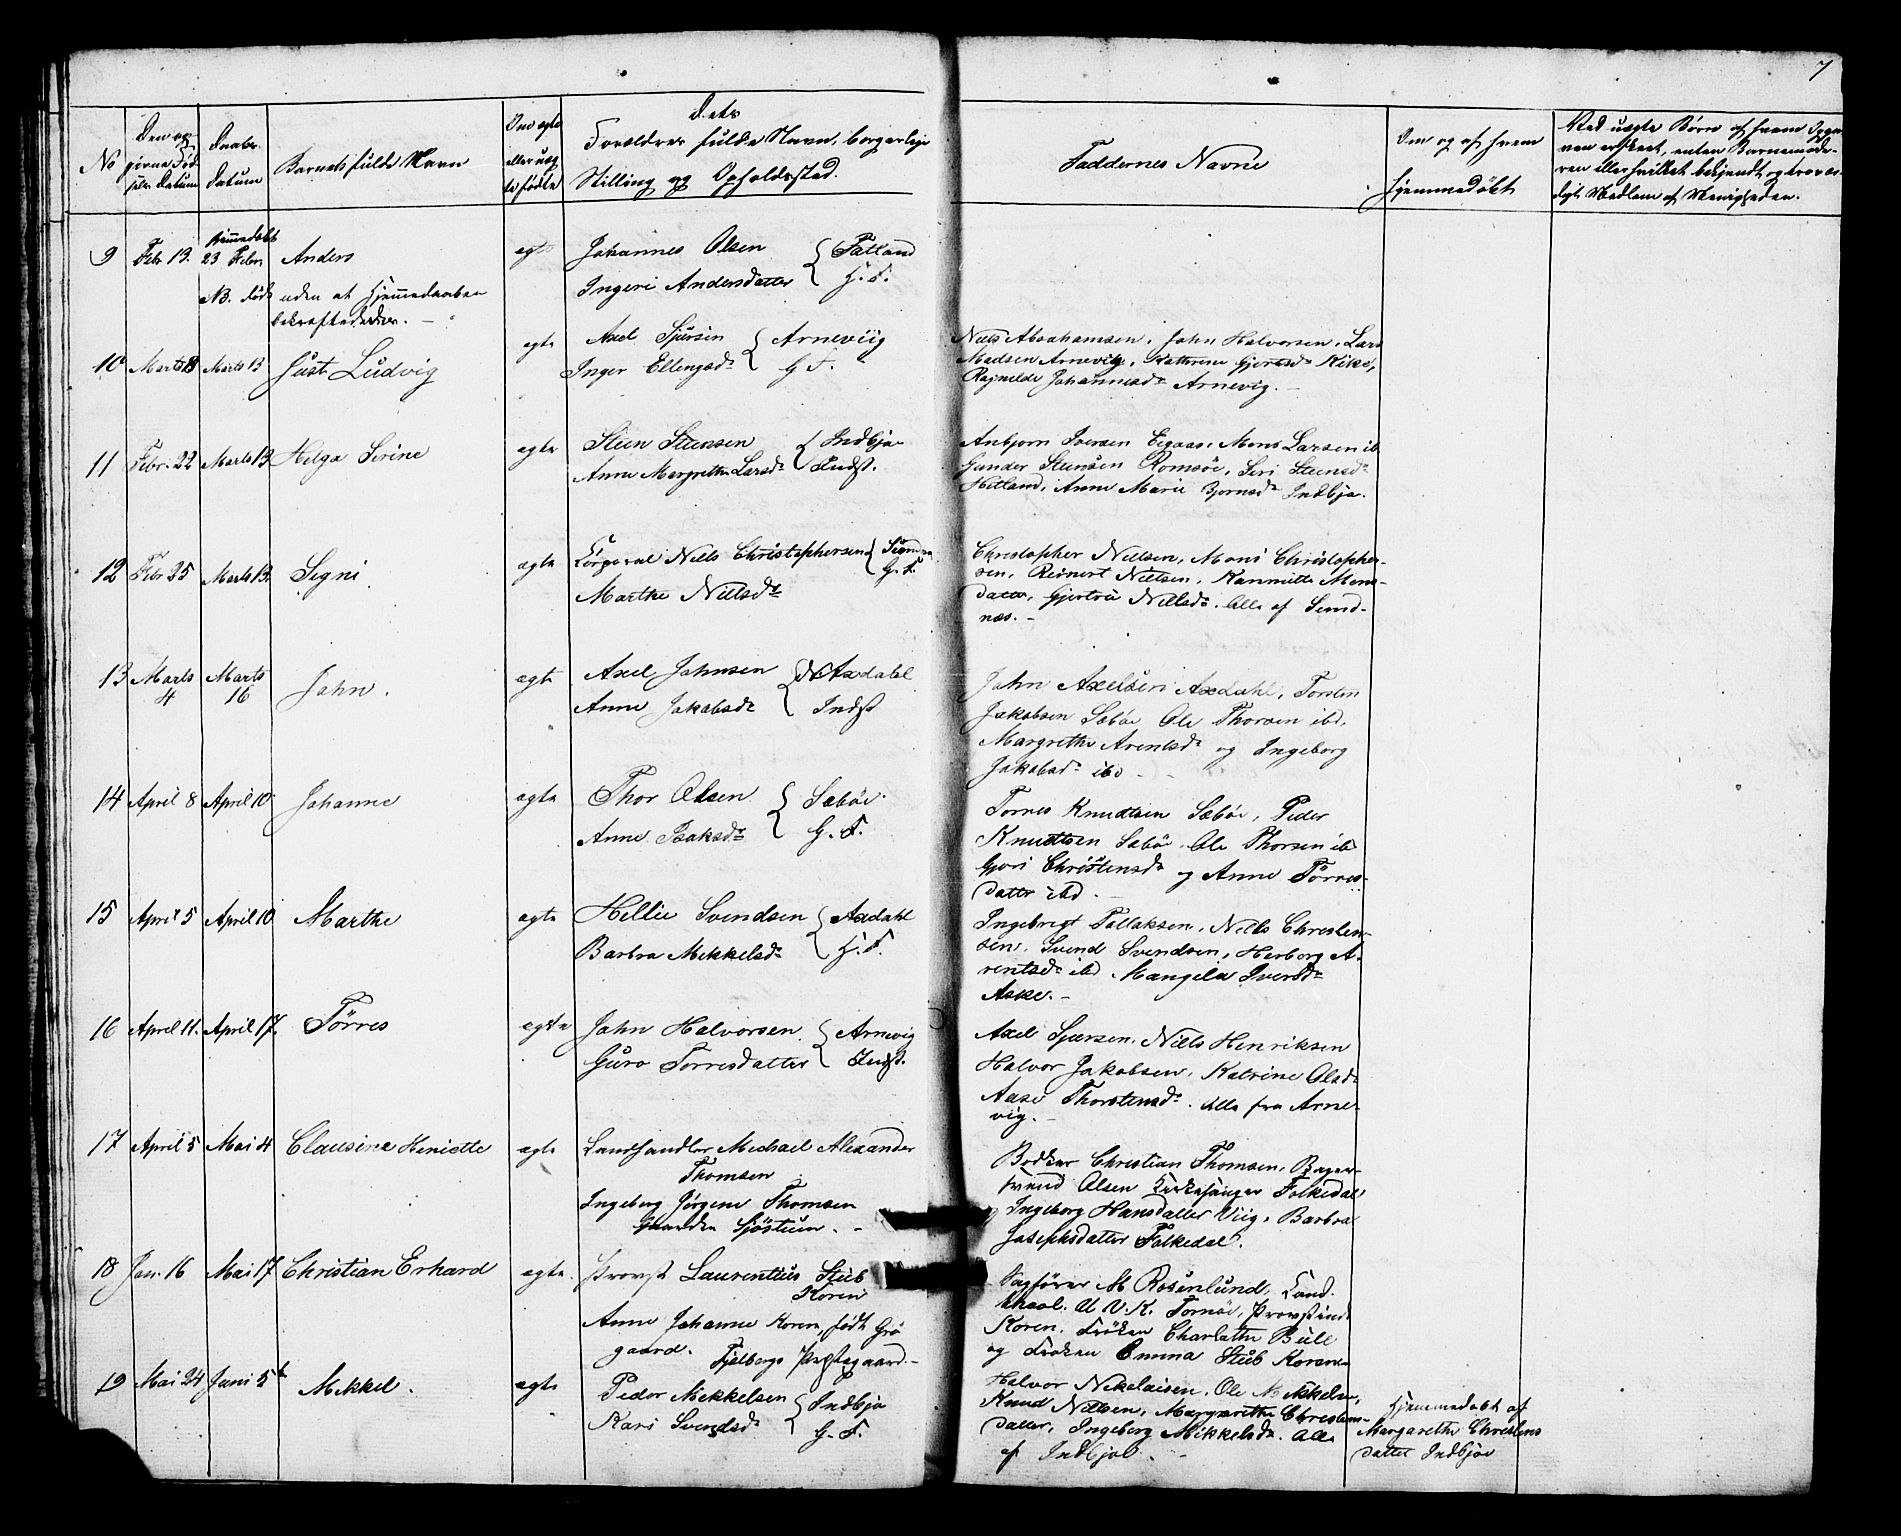 7
No
Den og- givne Fødsels Datum
Daabs Datum
Barnets fulde Navn
Om egte eller uegte fødte
dets Forældres fulde Navn, borgerlige Stilling og Opholdssted.
Faddernes Navne
Om og af hvem hjemmedøbt
Ved uegte Børn af hvem Opgaven er skeet, enten Barnemoderen eller hvilket bekjendt og troværdigt Medlem af Menigheden.
9 Febr 13. Hjemmedøbt 23 Febr. Anders
egte Johannes Olsen Fatland
Ingeri Andersdatter G. F.
NB. døde uden at Hjemmedaaben
bekræftedes.
10 Marts 8 Marts 13 Gust Ludvig
egte Axel Sjursen Arneviig
Inger Ellengsdr G F.
Niels Abrahamsen, John Halvorsen, Lars
Madsen Arnevig, Kathrine Gjertsdr Kike,
Ragnilde Johannesdr Arnevig.
11 Febr. 22 Marts 13 Helga Serine
egte Steen Steensen Indbjo
Anne Margrethe Larsdr Indst.
Anbjorn Iversen Eigaas, Mons Larsen ib
Gunder Steensen Romsøe, Siri Steensdr
Hetland, Anne Marie Bjornsdr Indbjo.
12 Febr 25 Marts 13. Segni
egte Korporal Niels Christophersen
Marthe Nielsdr G. F.
Christopher Nielsen, Mons Christopher-
sen, Reinert Nielsen, Kanutte Mons-
datter, Gjertrü Nielsdr. Alle af Sund-
næs.
13 Marts 4 Marts 16 John.
egte Axel Johnsen N Axdahl
Anne Jakobsdr Indst
John Axelsen Axdahl, Torsten
Jakobsen Sæbøe Ole Thorsen ibd,
Margrethe Arentsdr og Ingeborg
Jakobsdr ibd
14 April 8 April 10 Johanne
egte Thor Olsen Sæbøe.
Anne Isaksdr G. F.
Torres Knudtsen Sæbøe, Peder
Knudtsen Sæbøe. Ole Thorsen ib
Gjøri Christensdr og Anne Tørres-
datter ibd
15 April 5 April 10 Marthe
egte Hellie Svendsen Axdahl
Barbra Mikkelsdr G. F.
Ingebrigt Tollaksen, Niels Christen-
sen, Svend Svendsen, Herborg A-
rentsdr ibd, Mangela Iversdr
Aske.
16 April 11. April 17. Tørres
egte John Halvorsen Arnevig
Guro Torresdatter Indst.
Axel Sjursen, Niels Henriksen
Halvor Jakobsen, Katrine Olsdr
Aase Thorstensdr. Alle fra Arne-
vig.
17 April 5 Mai 4 Clausine Heniette
egte Landhandler Michael Alexander
Thomsen
Ingeborg Jørgine Thomsen
Gaarden Sjøstuen.
Bødker Christian Thomsen, Bager-
svend Olsen Kirkesanger Folkedal
Ingeborg Hansdatter Viig, Barbra
Josephsdatter Folkedal.
18 Jan. 16 Mai 17 Christian Erhard
egte. Provst Laurentius Stub
Koren
Anne Johanne Koren, født Grø
gaard. Fjelbergs Præstegaard.
Sagfører M Rosenlund, Cand.
theol. A V. K. Tornøe, Provstinde
Koren, Frøken Charlotte Bull
og Frøken Emma Stub Koren
19 Mai 24 Juni 5 Mikkel.
egte Peder Mikkelsen Indbjo
Kari Svendsdr G. F.
Halvor Nikolaisen, Ole Mikkelsen,
Knud Nielsen, Margarethe Christens-
datter, Ingeborg Mikkelsdr. Alle
af Indbjoe.
Hjemmedøbt af
Margarethe Christens
datter Indbjøe